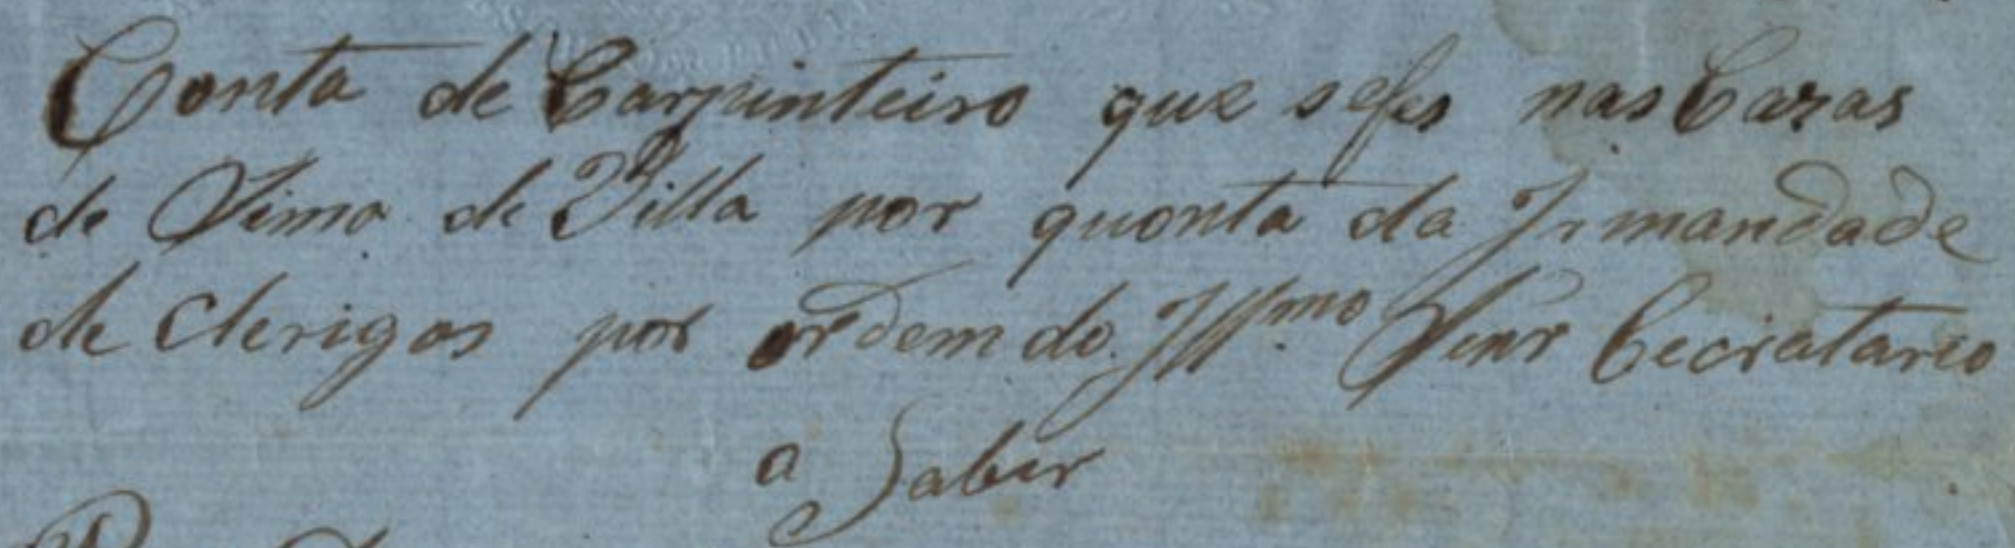 Conta de Carpinteiro que sefes nas Cazas
de Sima de Villa por quonta da Irmandade
de Clerigos por ordem do Illmo Senr Cecratario
a Saber